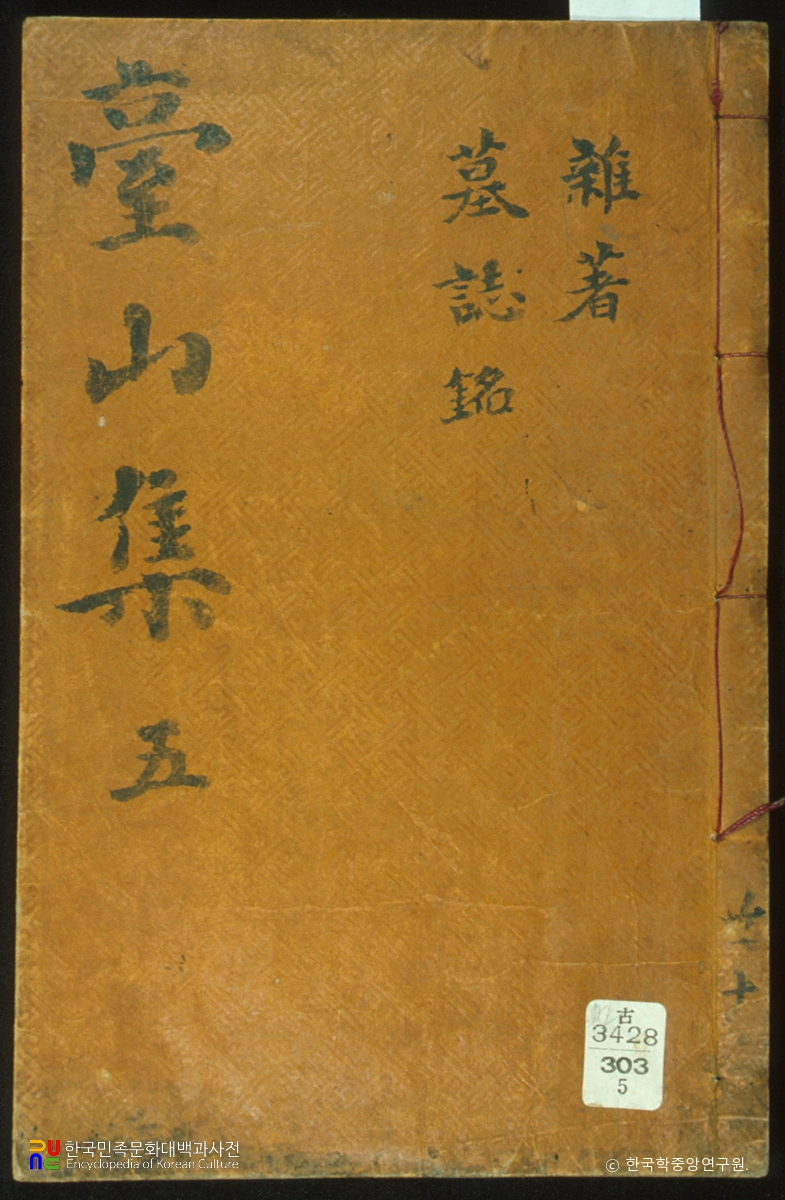 雜著
墓誌銘
臺山集 五
共十
古
3428
303
5
한국민족문화대백과사전
Encyclopedia of Korean Culture
© 한국학중앙연구원.